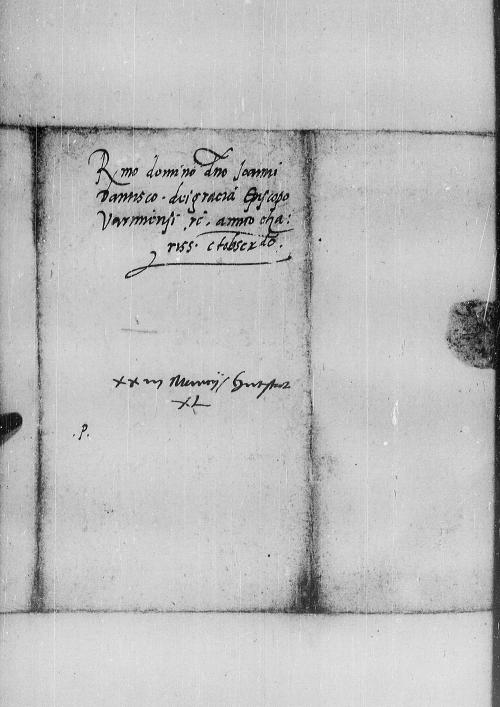 Rmo domino Dno Joanni
Dantisco dei gracia Episcopo
Varmiensi rc. amico cha:
riss. et obser do.
XXIII
XL
.P.